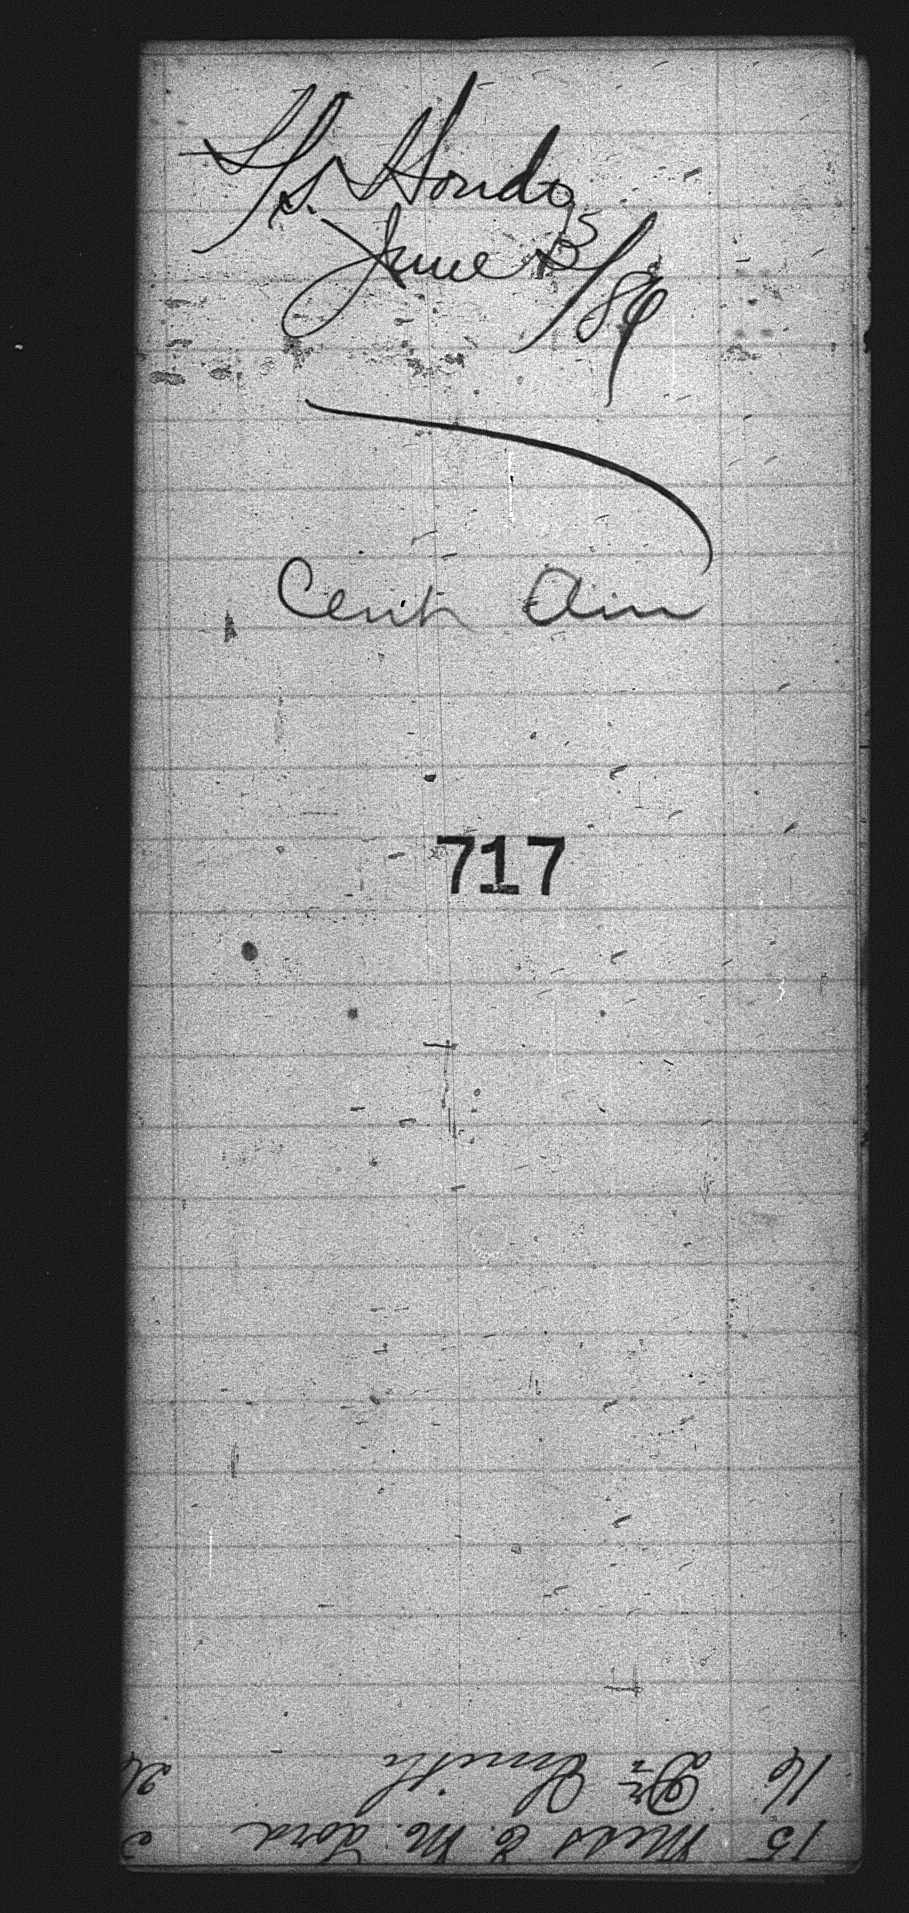 S/s. Hondo,
June 5/86
Cent Am
717
15 Miss E. M. Lord
16 Dr Smith 26